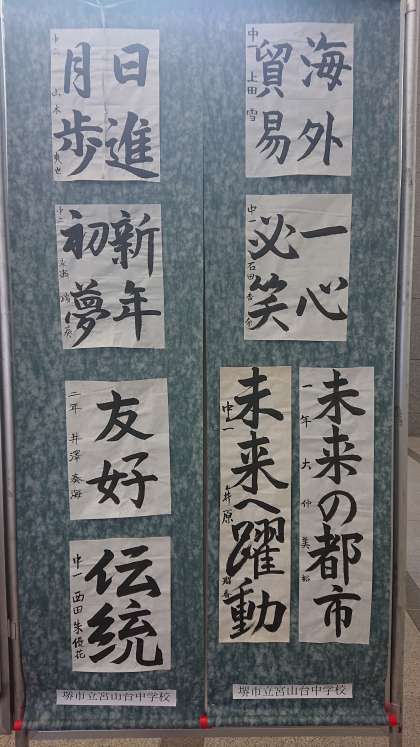 海外
貿易
中一 上田 雪
一心
必笑
中一 石田
未来の都市
一年 大仲 美
未来へ躍動
中一 井原
堺市立宮山台中学校
日進
月歩
新年
初夢
中二
友好
二年 井澤 奏海
伝統
中一 西田 朱優花
堺市立宮山台中学校